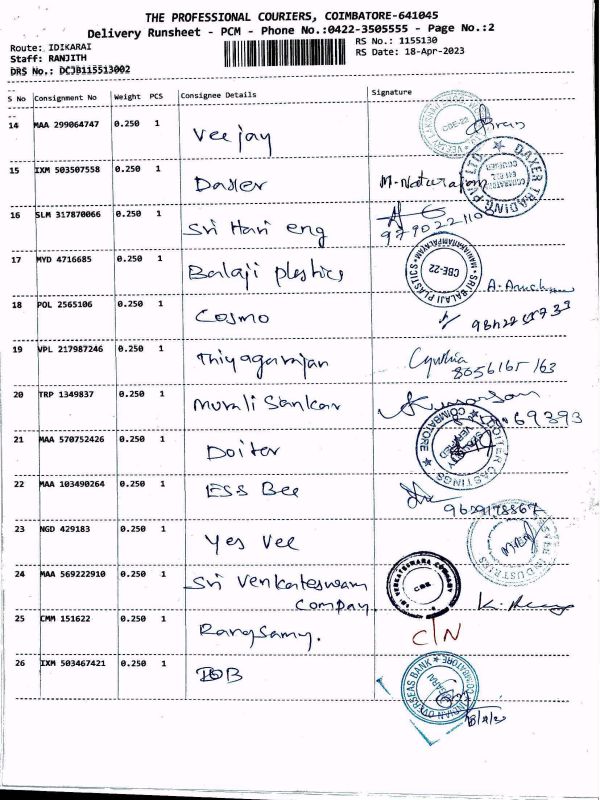 THE PROFESSIONAL COURIERS, COIMBATORE-641045
Delivery Runsheet - PCM - Phone No.:0422-3505555 - Page No.:2
Route: IDIKARAI
RS No.: 1155130
Staff: RANJITH
RS Date: 18-Apr-2023
DRS No.: DCJB115513002
S No Consignment No Weight PCS Consignee Details Signature
14 MAA 299064747 0.250 1 Veejay
CBE-22
15 IXM 503507558 0.250 1 Daxer M-Natarajan
DAXER TRADING PVT LTD.
16 SLM 317870066 0.250 1 Sri Hari eng
17 MYD 4716685 0.250 1 Balaji plastics
SRI BALAJI PLASTICS
CBE-22
18 POL 2565106 0.250 1 Cosmo
19 VPL 217987246 0.250 1 Thiyagarajan Cynthia
8056165163
20 TRP 1349837 0.250 1 Murali Sankar
69393
21 MAA 570752426 0.250 1 Doiter
DOITER CASTINGS COIMBATORE
22 MAA 103490264 0.250 1 ESS Bee
9629178867
23 NGD 429183 0.250 1 Yes Vee
INDUSTRIES
24 MAA 569222910 0.250 1 Sri Venkateswam
Compay
SRI VENKATESWARA COMPANY
CBE
25 CMM 151622 0.250 1 Rangsamy. C/N
26 IXM 503467421 0.250 1 IOB
INDIAN OVERSEAS BANK COIMBATORE